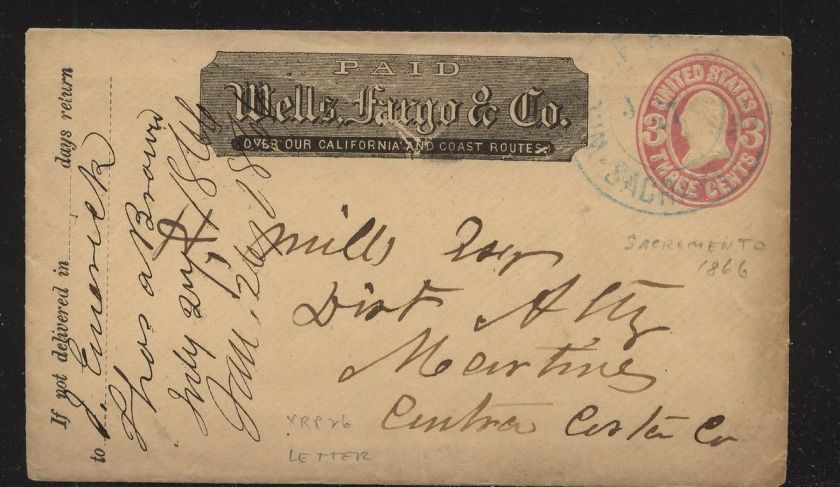 PAID
Wells, Fargo & Co.
OVER OUR CALIFORNIA AND COAST ROUTES
UNITED STATES
3 3
THREE CENTS
SAC
If not delivered in days return
to J. Emerick
Thos a Brown
July 24, 1866
Jan. 26
Mills Esqr
Dist Atty
Martines
Contra Costa Co
SACROMENTO
1866
LETTER